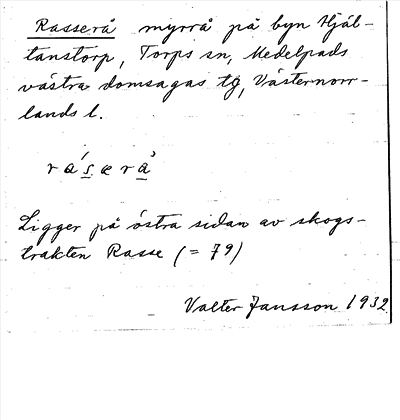 Rasserå myrrå på byn Hjäl-
tanstorp, Torps sn, Medelpads
västra domsagas tg, Västernorr-
lands l.
råsærå
Ligger på östra sidan av skogs-
trakten Rasse (= 79)
Valter Jansson 1932.